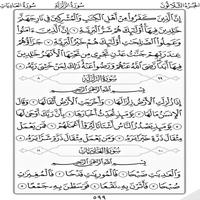 الجزء الثلاثون سورة الزلزلة سورة العاديات
إِنَّ ٱلَّذِينَ كَفَرُوا۟ مِنْ أَهْلِ ٱلْكِتَٰبِ وَٱلْمُشْرِكِينَ فِى نَارِ جَهَنَّمَ
خَٰلِدِينَ فِيهَآ أُو۟لَٰٓئِكَ هُمْ شَرُّ ٱلْبَرِيَّةِ ٦ إِنَّ ٱلَّذِينَ ءَامَنُوا۟
وَعَمِلُوا۟ ٱلصَّٰلِحَٰتِ أُو۟لَٰٓئِكَ هُمْ خَيْرُ ٱلْبَرِيَّةِ ٧ جَزَآؤُهُمْ
عِندَ رَبِّهِمْ جَنَّٰتُ عَدْنٍ تَجْرِى مِن تَحْتِهَا ٱلْأَنْهَٰرُ خَٰلِدِينَ
فِيهَآ أَبَدًا رَّضِىَ ٱللَّهُ عَنْهُمْ وَرَضُوا۟ عَنْهُ ذَٰلِكَ لِمَنْ خَشِىَ رَبَّهُۥ ٨
سُورَةُ الزَّلْزَلَةِ
بِسْمِ ٱللَّهِ ٱلرَّحْمَٰنِ ٱلرَّحِيمِ
إِذَا زُلْزِلَتِ ٱلْأَرْضُ زِلْزَالَهَا ١ وَأَخْرَجَتِ ٱلْأَرْضُ أَثْقَالَهَا ٢
وَقَالَ ٱلْإِنسَٰنُ مَا لَهَا ٣ يَوْمَئِذٍ تُحَدِّثُ أَخْبَارَهَا ٤ بِأَنَّ رَبَّكَ أَوْحَىٰ لَهَا ٥
يَوْمَئِذٍ يَصْدُرُ ٱلنَّاسُ أَشْتَاتًا لِّيُرَوْا۟ أَعْمَٰلَهُمْ ٦ فَمَن يَعْمَلْ
مِثْقَالَ ذَرَّةٍ خَيْرًا يَرَهُۥ ٧ وَمَن يَعْمَلْ مِثْقَالَ ذَرَّةٍ شَرًّا يَرَهُۥ ٨
سُورَةُ العَادِيَاتِ
بِسْمِ ٱللَّهِ ٱلرَّحْمَٰنِ ٱلرَّحِيمِ
وَٱلْعَٰدِيَٰتِ ضَبْحًا ١ فَٱلْمُورِيَٰتِ قَدْحًا ٢ فَٱلْمُغِيرَٰتِ
صُبْحًا ٣ فَأَثَرْنَ بِهِۦ نَقْعًا ٤ فَوَسَطْنَ بِهِۦ جَمْعًا ٥
٥٩٩